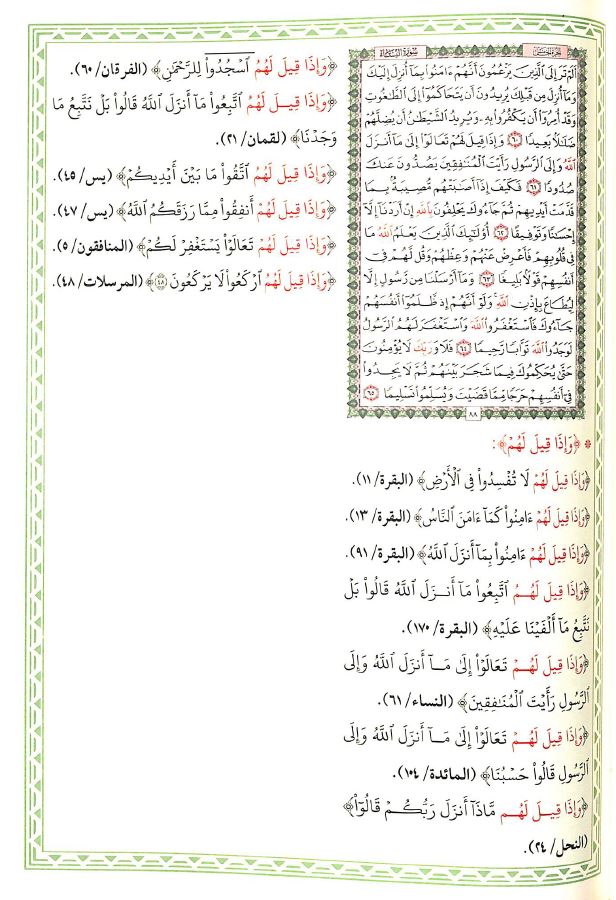 الجزء الخامس
سورة النساء
أَلَمْ تَرَ إِلَى ٱلَّذِينَ يَزْعُمُونَ أَنَّهُمْ ءَامَنُوا۟ بِمَآ أُنزِلَ إِلَيْكَ
وَمَآ أُنزِلَ مِن قَبْلِكَ يُرِيدُونَ أَن يَتَحَاكَمُوٓا۟ إِلَى ٱلطَّٰغُوتِ
وَقَدْ أُمِرُوٓا۟ أَن يَكْفُرُوا۟ بِهِۦ وَيُرِيدُ ٱلشَّيْطَٰنُ أَن يُضِلَّهُمْ
ضَلَٰلًۢا بَعِيدًا ٦٠ وَإِذَا قِيلَ لَهُمْ تَعَالَوْا۟ إِلَىٰ مَآ أَنزَلَ
ٱللَّهُ وَإِلَى ٱلرَّسُولِ رَأَيْتَ ٱلْمُنَٰفِقِينَ يَصُدُّونَ عَنكَ
صُدُودًا ٦١ فَكَيْفَ إِذَآ أَصَٰبَتْهُم مُّصِيبَةٌۢ بِمَا
قَدَّمَتْ أَيْدِيهِمْ ثُمَّ جَآءُوكَ يَحْلِفُونَ بِٱللَّهِ إِنْ أَرَدْنَآ إِلَّآ
إِحْسَٰنًا وَتَوْفِيقًا ٦٢ أُو۟لَٰٓئِكَ ٱلَّذِينَ يَعْلَمُ ٱللَّهُ مَا
فِى قُلُوبِهِمْ فَأَعْرِضْ عَنْهُمْ وَعِظْهُمْ وَقُل لَّهُمْ فِىٓ
أَنفُسِهِمْ قَوْلًۢا بَلِيغًا ٦٣ وَمَآ أَرْسَلْنَا مِن رَّسُولٍ إِلَّا
لِيُطَاعَ بِإِذْنِ ٱللَّهِ وَلَوْ أَنَّهُمْ إِذ ظَّلَمُوٓا۟ أَنفُسَهُمْ
جَآءُوكَ فَٱسْتَغْفَرُوا۟ ٱللَّهَ وَٱسْتَغْفَرَ لَهُمُ ٱلرَّسُولُ
لَوَجَدُوا۟ ٱللَّهَ تَوَّابًا رَّحِيمًا ٦٤ فَلَا وَرَبِّكَ لَا يُؤْمِنُونَ
حَتَّىٰ يُحَكِّمُوكَ فِيمَا شَجَرَ بَيْنَهُمْ ثُمَّ لَا يَجِدُوا۟
فِىٓ أَنفُسِهِمْ حَرَجًا مِّمَّا قَضَيْتَ وَيُسَلِّمُوا۟ تَسْلِيمًا ٦٥
٨٨
* ﴿وَإِذَا قِيلَ لَهُمْ﴾:
﴿وَإِذَا قِيلَ لَهُمْ لَا تُفْسِدُوا۟ فِى ٱلْأَرْضِ﴾ (البقرة/ ١١).
﴿وَإِذَا قِيلَ لَهُمْ ءَامِنُوا۟ كَمَآ ءَامَنَ ٱلنَّاسُ﴾ (البقرة/ ١٣).
﴿وَإِذَا قِيلَ لَهُمْ ءَامِنُوا۟ بِمَآ أَنزَلَ ٱللَّهُ﴾ (البقرة/ ٩١).
﴿وَإِذَا قِيلَ لَهُمُ ٱتَّبِعُوا۟ مَآ أَنزَلَ ٱللَّهُ قَالُوا۟ بَلْ
نَتَّبِعُ مَآ أَلْفَيْنَا عَلَيْهِ﴾ (البقرة/ ١٧٠).
﴿وَإِذَا قِيلَ لَهُمْ تَعَالَوْا۟ إِلَىٰ مَآ أَنزَلَ ٱللَّهُ وَإِلَى
ٱلرَّسُولِ رَأَيْتَ ٱلْمُنَٰفِقِينَ﴾ (النساء/ ٦١).
﴿وَإِذَا قِيلَ لَهُمْ تَعَالَوْا۟ إِلَىٰ مَآ أَنزَلَ ٱللَّهُ وَإِلَى
ٱلرَّسُولِ قَالُوا۟ حَسْبُنَا﴾ (المائدة/ ١٠٤).
﴿وَإِذَا قِيلَ لَهُم مَّاذَآ أَنزَلَ رَبُّكُمْ قَالُوٓا۟﴾
(النحل/ ٢٤).
﴿وَإِذَا قِيلَ لَهُمُ ٱسْجُدُوا۟ لِلرَّحْمَٰنِ﴾ (الفرقان/ ٦٠).
﴿وَإِذَا قِيلَ لَهُمُ ٱتَّبِعُوا۟ مَآ أَنزَلَ ٱللَّهُ قَالُوا۟ بَلْ نَتَّبِعُ مَا
وَجَدْنَا﴾ (لقمان/ ٢١).
﴿وَإِذَا قِيلَ لَهُمُ ٱتَّقُوا۟ مَا بَيْنَ أَيْدِيكُمْ﴾ (يس/ ٤٥).
﴿وَإِذَا قِيلَ لَهُمْ أَنفِقُوا۟ مِمَّا رَزَقَكُمُ ٱللَّهُ﴾ (يس/ ٤٧).
﴿وَإِذَا قِيلَ لَهُمْ تَعَالَوْا۟ يَسْتَغْفِرْ لَكُمْ﴾ (المنافقون/ ٥).
﴿وَإِذَا قِيلَ لَهُمُ ٱرْكَعُوا۟ لَا يَرْكَعُونَ ٤٨﴾ (المرسلات/ ٤٨).